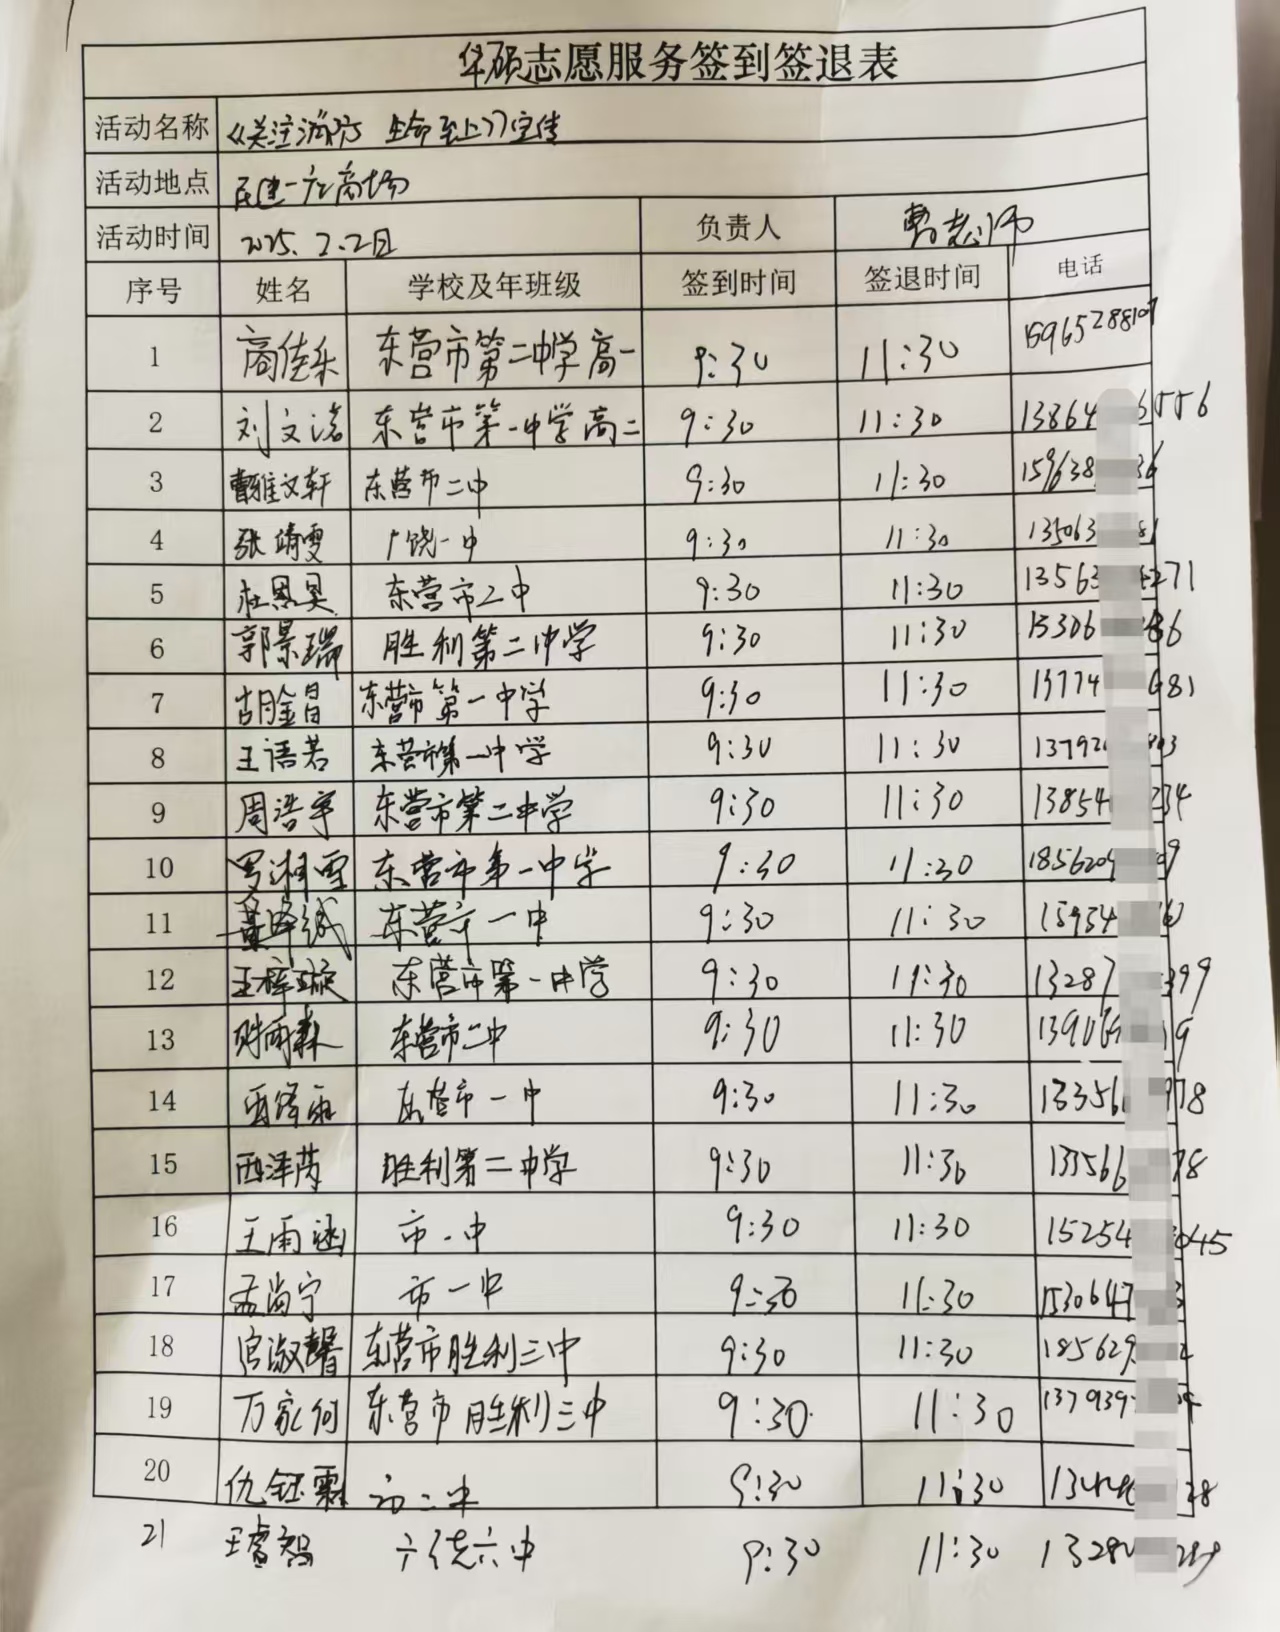 华硕志愿服务签到签退表
活动名称 《关注消防 生命至上》宣传
活动地点 民建一广商场
活动时间 2025.2.2日 负责人 曹老师
序号 姓名 学校及年班级 签到时间 签退时间 电话
1 高佳乐 东营市第二中学高一 9:30 11:30 15965288107
2 刘文诺 东营市第一中学高二 9:30 11:30 13864 6556
3 曹雅文轩 东营市二中 9:30 11:30 159638 36
4 张靖雯 广饶一中 9:30 11:30 135063 81
5 杜恩昊 东营市二中 9:30 11:30 13563 4271
6 郭景瑞 胜利第二中学 9:30 11:30 15306 86
7 胡金昌 东营市第一中学 9:30 11:30 13774 681
8 王语若 东营市第一中学 9:30 11:30 13792 03
9 周浩宇 东营市第二中学 9:30 11:30 13854 234
10 罗湘雪 东营市第一中学 9:30 11:30 1856209 09
11 东营市一中 9:30 11:30 15954
12 王梓璇 东营市第一中学 9:30 11:30 13287 399
13 雨森 东营市二中 9:30 11:30 13906 19
14 东营市一中 9:30 11:30 133566 978
15 西泽芮 胜利第二中学 9:30 11:30 133566 78
16 王雨涵 市一中 9:30 11:30 15254 3045
17 孟尚宁 市一中 9:30 11:30 1530647 3
18 官淑馨 东营市胜利三中 9:30 11:30 185629 2
19 万家何 东营市胜利三中 9:30 11:30 137939
20 仇钰霖 市二中 9:30 11:30 38
21 王睿 六中 9:30 11:30 13280